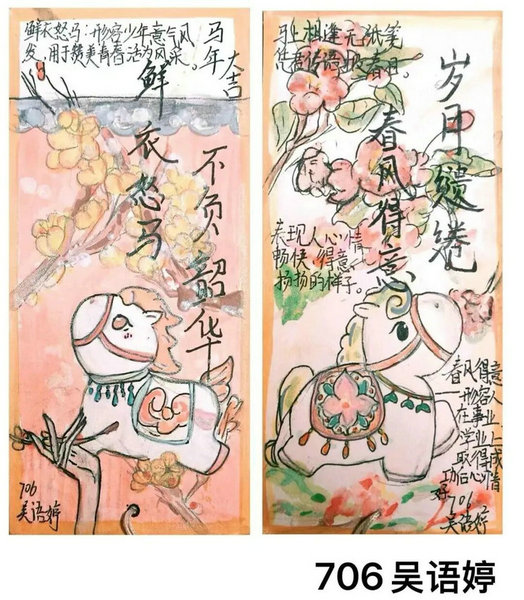 鲜衣怒马:形容少年意气风
发,用于赞美青春活力风采。
马年
大吉
鲜衣怒马
不负韶华
706
吴语婷
马上相逢无纸笔
传语
春日。
岁月缱绻
春风得意
表现人心情
畅快、得意
扬扬的样子。
春风得意
形容人
在事业
学业上
取得成
功后心情
好
706
吴语婷
706吴语婷